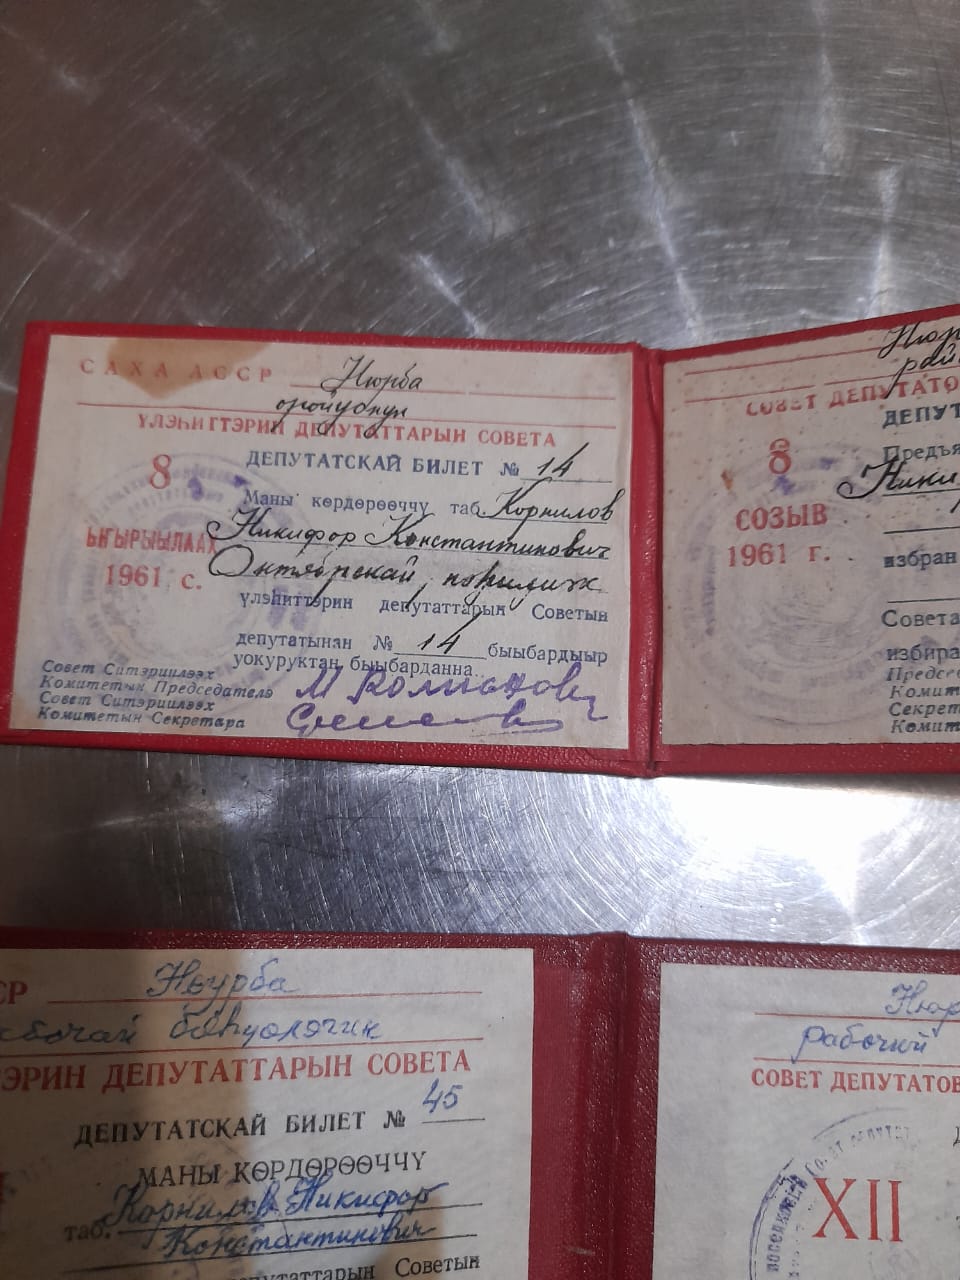 САХА АССР Нюрба
оройуонун
ҮЛЭҺИТТЭРИН ДЕПУТАТТАРЫН СОВЕТА
ДЕПУТАТСКАЙ БИЛЕТ № 14
8
ЫҤЫРЫЫЛААХ
1961 с.
Маны көрдөрөөччү таб. Корнилов
Никифор Константинович
Октябрскай
үлэһиттэрин депутаттарын Советын
депутатынан № 14 быыбардыыр
уокуруктан быыбарданна
Совет Ситэриилээх
Комитетын Председателэ
Совет Ситэриилээх
Комитетын Секретара
Нюр
рай
СОВЕТ ДЕПУТАТО
ДЕПУТ
8
СОЗЫВ
1961 г.
Предъя
Ники
избран
Совета
избира
Предсе
Комит
Секрет
Комит
СР Ньурба
бочай бөһүөлэгин
ЭРИН ДЕПУТАТТАРЫН СОВЕТА
ДЕПУТАТСКАЙ БИЛЕТ № 45
МАНЫ КӨРДӨРӨӨЧЧҮ
таб. Корнилов Никифор
Константинович
депутаттарын Советын
Нюр
рабочий
СОВЕТ ДЕПУТАТОВ
XII